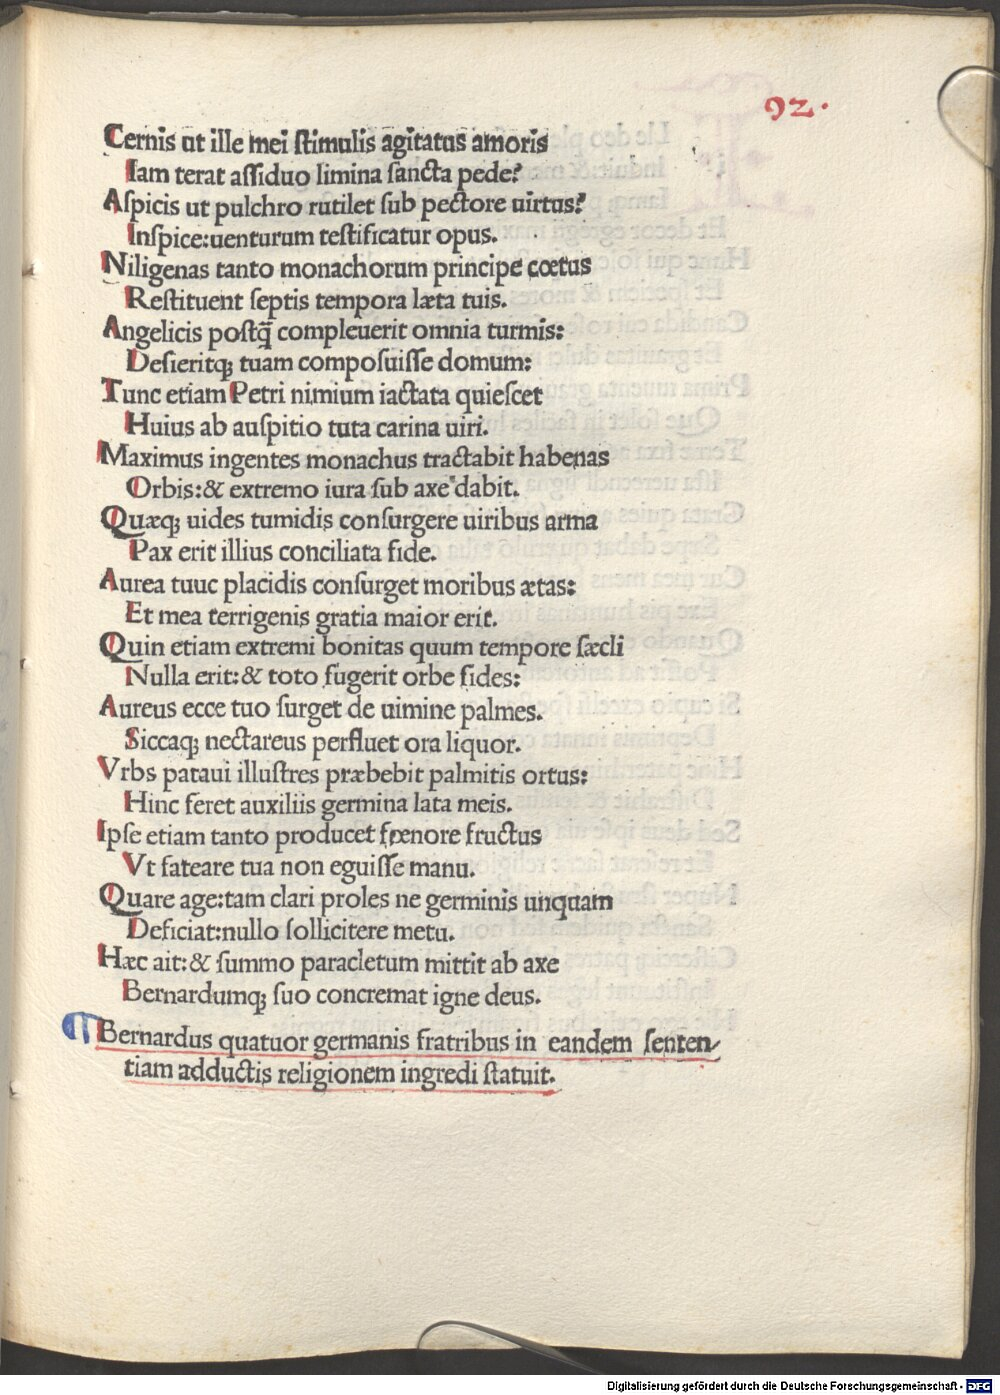 92.
Cernis ut ille mei ſtimulis agitatus amoris
Iam terat aſſiduo limina ſancta pede?
Aſpicis ut pulchro rutilet ſub pectore uirtus?
Inſpice:uenturum teſtificatur opus.
Niligenas tanto monachorum principe cœtus
Reſtituent ſeptis tempora læta tuis.
Angelicis poſtq̄ compleuerit omnia turmis:
Deſieritq; tuam compoſuiſſe domum:
Tunc etiam Petri nimium iactata quieſcet
Huius ab auſpitio tuta carina uiri.
Maximus ingentes monachus tractabit habenas
Orbis:& extremo iura ſub axe dabit.
Quæq; uides tumidis conſurgere uiribus arma
Pax erit illius conciliata fide.
Aurea tuuc placidis conſurget moribus ætas:
Et mea terrigenis gratia maior erit.
Quin etiam extremi bonitas quum tempore ſæcli
Nulla erit:& toto fugerit orbe fides:
Aureus ecce tuo ſurget de uimine palmes.
Siccaq; nectareus perfluet ora liquor.
Vrbs pataui illuſtres præbebit palmitis ortus:
Hinc feret auxiliis germina lata meis.
Ipſe etiam tanto producet fœnore fructus
Vt fateare tua non eguiſſe manu.
Quare age:tam clari proles ne germinis unquam
Deficiat:nullo ſollicitere metu.
Hæc ait:& ſummo paracletum mittit ab axe
Bernardumq; ſuo concremat igne deus.
¶ Bernardus quatuor germanis fratribus in eandem ſenten⸗
tiam adductis religionem ingredi ſtatuit.
Digitalisierung gefördert durch die Deutsche Forschungsgemeinschaft - DFG